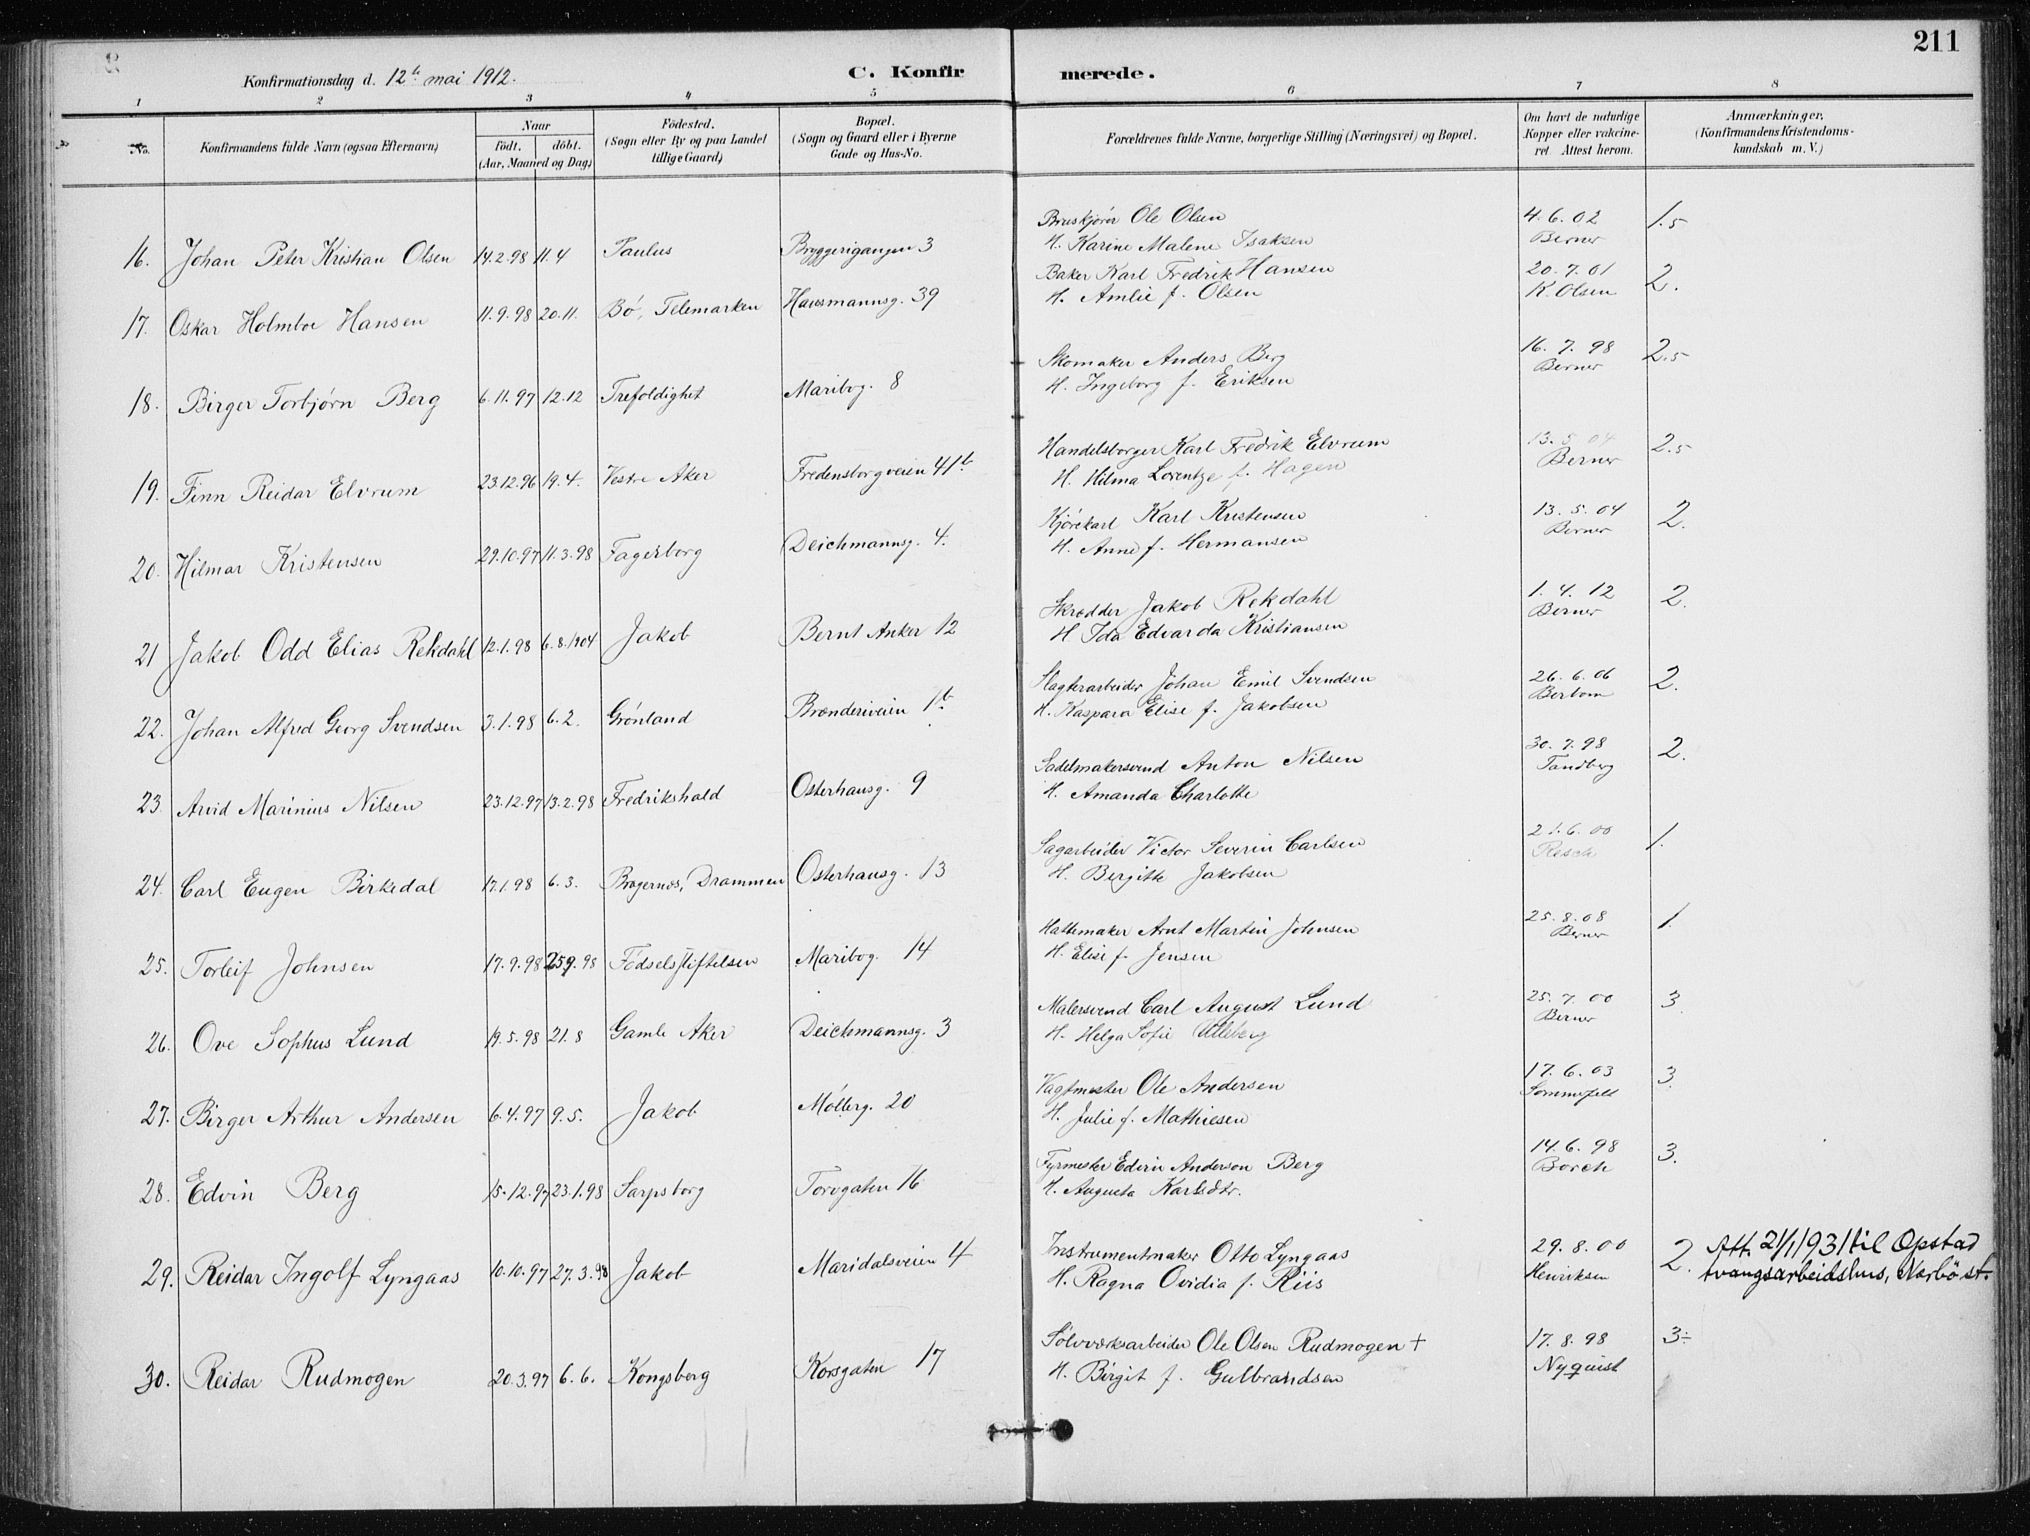 211
Konfirmationsdag d. 12te mai 1912.
C. Konfirmerede.
1 2 3 4 5 6 7 8
No.
Konfirmandens fulde Navn (ogsaa Efternavn)
Naar
Födt. döbt.
(Aar, Maaned og Dag)
Födested.
(Sogn eller By og paa Landet
tillige Gaard)
Bopæl.
(Sogn og Gaard eller i Byerne
Gade og Hus-No.
Forældrenes fulde Navne, borgerlige Stilling (Næringsvei) og Bopæl.
Om havt de naturlige
Kopper eller vakcine-
ret. Attest herom.
Anmærkninger.
(Konfirmandens Kristendoms-
kundskab m. V.)
16. Johan Peter Kristian Olsen 14.2.98 11.4 Paulus Bryggerigangen 3
Bruskjører Ole Olsen 4.6.02 1.5
H. Karine Malene Isaksen Berner
17. Oskar Holmboe Hansen 11.9.98 20.11. Bö, Telemarken Hausmannsg. 39
Baker Karl Fredrik Hansen 20.7.01 2.
H. Amlie f. Olsen K. Olsen
18. Birger Torbjørn Berg 6.11.97 12.12 Trefoldighet Maribog. 8
Skomaker Anders Berg 16.7.98 2.5
H. Ingeborg f. Eriksen Berner
19. Finn Reidar Elvrum 23.12.96 19.4. Vestre Aker Fredensborgveien 41b
Handelsborger Karl Fredrik Elvrum 13.5.04 2.5
H. Hilma Lorentze f. Hagen Berner
20. Hilmar Kristensen 29.10.97 11.3.98 Fagerborg Deichmannsg. 4.
Kjörekarl Karl Kristensen 13.5.04 2.
H. Anne f. Hermansen Berner
21 Jakob Odd Elias Rekdahl 12.1.98 6.8.1904 Jakob Bernt Anker 12
Skrædder Jakob Rekdahl 1.4.12 2.
H Ida Edvarda Kristiansen Berner
22. Johan Alfred Georg Svendsen 3.1.98 6.2. Grönland Brænderiveien 1b
Slagterarbeider Johan Emil Svendsen 26.6.06 2.
H. Kaspara Elise f. Jakobsen Berbom
23. Arvid Marinius Nilsen 23.12.97 13.2.98 Fredrikshald Osterhausg. 9
Sadelmakersvend Anton Nilsen 30.7.98 2.
H. Amanda Charlotte Tandberg
24. Carl Eugen Birkedal 17.1.98 6.3. Bragernæs, Drammen Osterhausg. 13
Sagarbeider Victor Severin Carlsen 21.6.00 1.
H. Birgitte Jakobsen Resch
25. Torleif Johnsen 17.9.98 25.9.98 Födselsstiftelsen Maribog. 14
Hattemaker Arnt Martin Johnsen 25.8.08 1.
H. Elise f. Jensen Berner
26. Ove Sophus Lund 19.5.98 21.8 Gamle Aker Deichmannsg. 3
Malersvend Carl August Lund 25.7.00 3.
H. Helga Sofie Ulleberg Berner
27. Birger Arthur Andersen 6.4.97 9.5. Jakob Möllerg. 20
Vagtmester Ole Andersen 17.6.03 3.
H. Julie f. Mathiesen Sommerfelt
28. Edvin Berg 15.12.97 23.1.98 Sarpsborg Torvgaten 16
Fyrmester Edvin Anderson Berg 14.6.98 3.
H. Augusta Karlsdtr. Borch
29. Reidar Ingolf Lyngaas 10.10.97 27.3.98 Jakob Maridalsveien 4
Instrumentmaker Otto Lyngaas 29.8.00 2. Att. 21/1 1931 til Opstad
H. Ragna Ovidia f. Riis Henriksen tvangsarbeidshus, Nærbö st.
30. Reidar Rudmogen 20.3.97 6.6. Kongsberg Korsgaten 17
Sølvværksarbeider Ole Olsen Rudmogen + 17.8.98 3÷
H. Birgit f. Gulbrandsen Nyquist